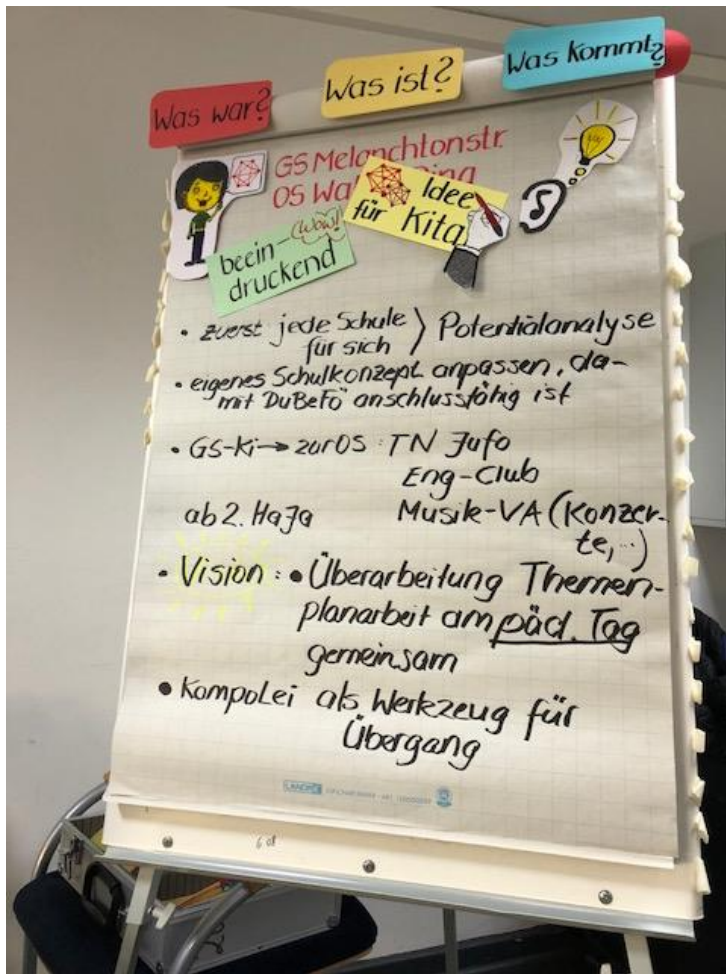 Was war?
Was ist?
Was kommt?
GS Melanchtonstr.
OS Wa
Idee
für Kita
(Wow!)
beein-
druckend
• zuerst jede Schule
für sich } Potentialanalyse
• eigenes Schulkonzept anpassen, da-
mit DuBeFö anschlussfähig ist
• GS-Ki → zur OS: TN Jufo
Eng-Club
ab 2. HaJa Musik-VA (Konzer-
te,...)
• Vision: • Überarbeitung Themen-
planarbeit am päd. Tag
gemeinsam
• KompoLei als Werkzeug für
Übergang
LANDRÉ